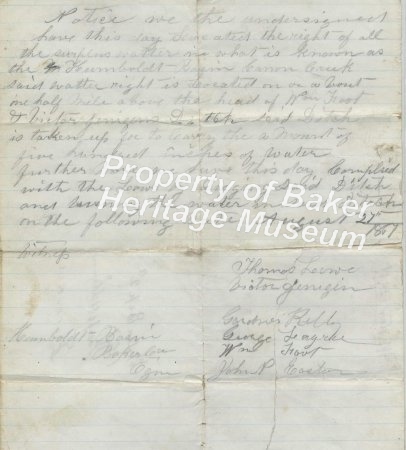 Notice we the undersigned
have this day Located the right of all
the surplus watter in what is known as
the Humboldt Basin Canon Creek
said watter right is Located on or a bout
one half mile above the head of Wm Foot
& Victor Jenigens Ditch Said Ditch
is taken up for to carry the a mount of
five hundred inches of water
further this day Complied
with the Laws
and water in
on the following August 27th 1867
Witness
Thomas Lowe
Victor Jenigin
Gardner
George
Wm Foot
John P.
Humboldt Basin
Baker Co
Ogin
Property of Baker
Heritage Museum